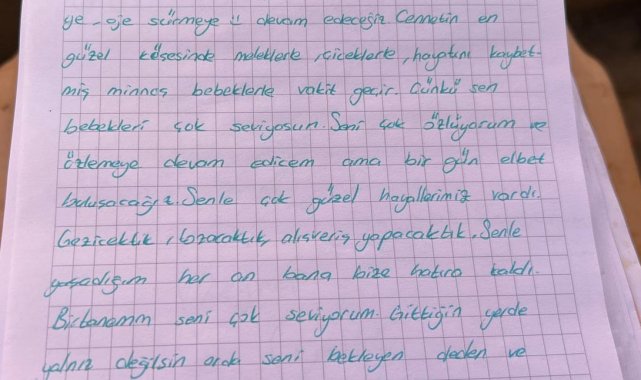 ye - oje sürmeye ü devam edeceğiz Cennetin en
güzel köşesinde meleklerle, çiceklerle, hayatını kaybet-
miş minnoş bebeklerle vakit geçir. Çünkü sen
bebekleri çok seviyosun. Seni çok özlüyorum ve
özlemeye devam edicem ama bir gün elbet
buluşacağız. Senle çok güzel hayallerimiz vardı.
Gezicektik, alışveriş yapacaktık. Senle
yaşadığım her an bana bize hatıra kaldı.
Bitanemm seni çok seviyorum. Gittiğin yerde
yalnız değilsin orda seni bekleyen deden ve